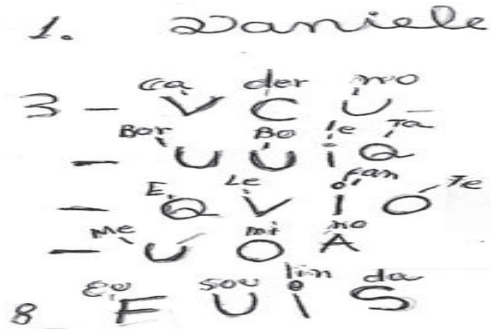 1. Daniele
Ca der no
3 - V C U -
Bor Bo le Ta
- U U i Q
E Le fan Te
- Q V I O
Me mi no
- U O A
Eu sou lin da
8 F U i S